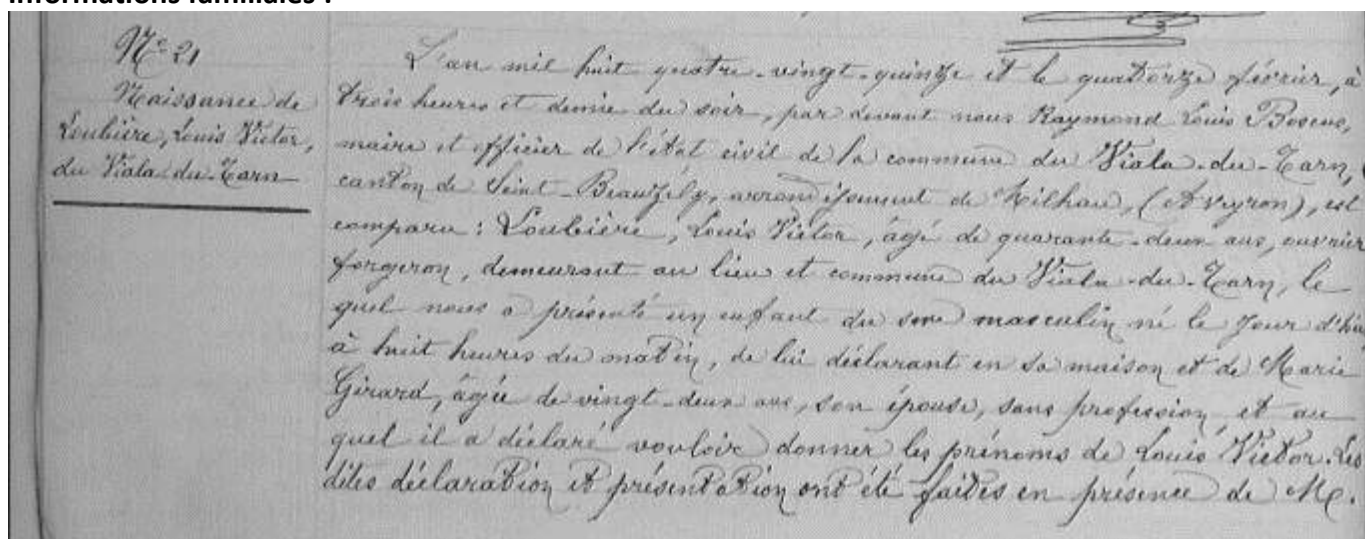 Informations familiales :
N° 21
Naissance de
Loubière, Louis Victor,
du Viala-du-Tarn
L'an mil huit quatre-vingt-quinze et le quatorze février, à
trois heures et demie du soir, par devant nous Raymond Louis Boscus,
maire et officier de l'état civil de la commune du Viala-du-Tarn,
canton de Saint-Beauzély, arrondissement de Milhau, (Aveyron), est
comparu : Loubière, Louis Victor, âgé de quarante-deux ans, ouvrier
forgeron, demeurant au lieu et commune du Viala-du-Tarn, le
quel nous a présenté un enfant du sexe masculin né le jour d'hier
à huit heures du matin, de lui déclarant en sa maison et de Marie
Girard, âgée de vingt-deux ans, son épouse, sans profession, et au
quel il a déclaré vouloir donner les prénoms de Louis Victor. Les
dites déclaration et présentation ont été faites en présence de M.